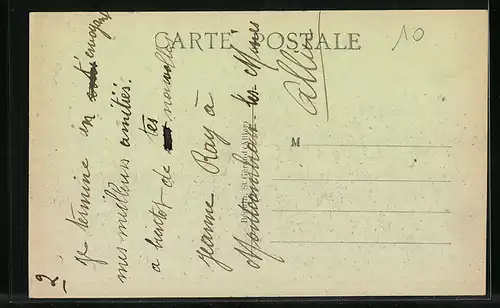 CARTE POSTALE
10
M
2
Je termine en t'envoyant
mes meilleurs amitiés.
a bientot de tes nouvelles
Jeanne Ray à
Montcombroux les Mines
Allier